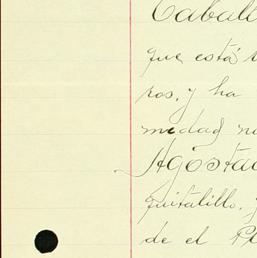 Caball
que está
ros, y ha
medad
Agosta
quitalillo.
de el